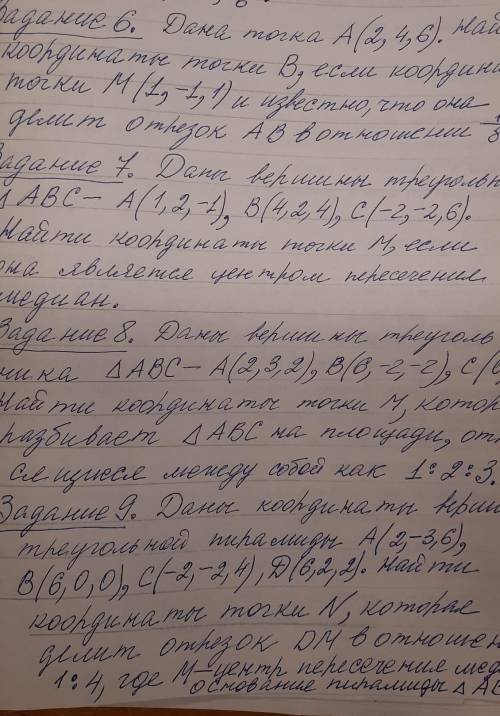 Задание 6. Дана точка А(2,4,6). Най
координаты точки В, если координа
точки М(1,-1,1) и известно, что она
делит отрезок АВ в отношении
Задание 7. Даны вершины треуголь
△АВС – А(1,2,-1), В(4,2,4), С(-2,-2,6).
Найти координаты точки М, если
она является центром пересечения
медиан.
Задание 8. Даны вершины треуголь
ника △АВС – А(2,3,2), В(6,-2,-2), С(
Найти координаты точки М, котор
разбивает △АВС на площади, отн
сящиеся между собой как 1:2:3.
Задание 9. Даны координаты верши
треугольной пирамиды А(2,-3,6),
В(6,0,0), С(-2,-2,4), D(6,2,2). Найти
координаты точки N, которая
делит отрезок DM в отношен
1:4, где М-центр пересечения мед
основание пирамиды △АВ